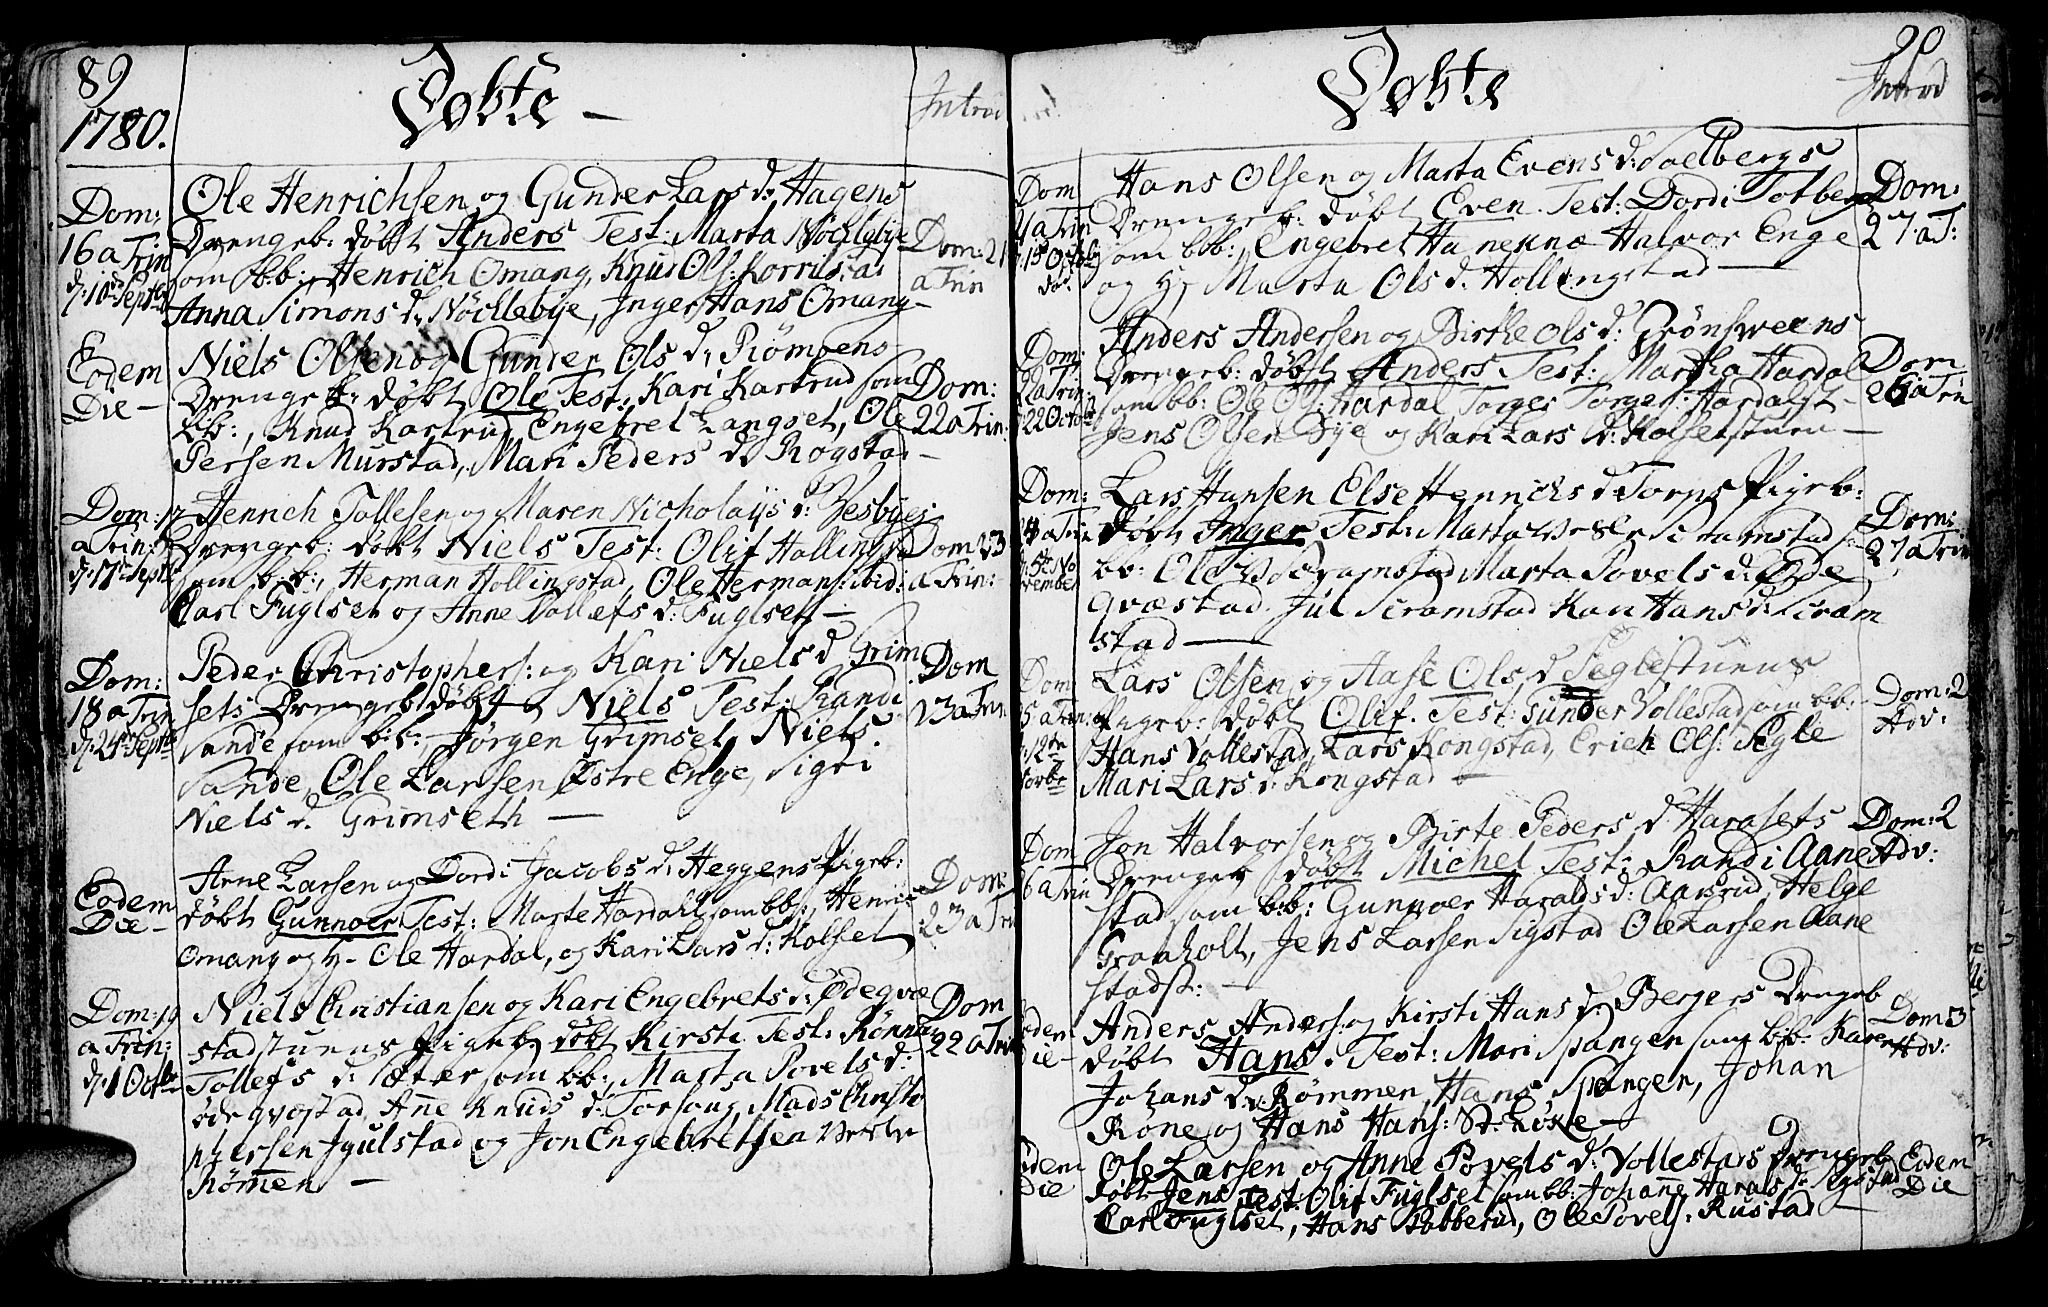 89
1780.
Døbte —
Introd
Dom:
16 a Trin
d: 10de Septb
Ole Henrichsen og Gunder Lars d: Hagens
Drengeb: døbt Anders Test: Marta Nöcklebye
som bb: Henrich Omang, Knud Ols: Korrilstad
Anna Simons d: Nöcklebye, Inger Hans Omang –
Dom: 21
a Trin
Eodem
Die –
Niels Olsen og Gunder Ols d: Römoens
Drengeb: døbt Ole Test: Kari Kartrud som
bb:, Knud Kartrud Engebret Langset, Ole
Persen Murstad, Mari Peders d: Rogstad –
Dom:
22 a Trin:
Dom: 17
a Trin:
d: 17de Septb
Henrich Tollesen og Maren Nicholaijs d: Vesbyes
Drengeb: døbt Niels Test: Olif Hollingst
som b.b:, Herman Hollingstad, Ole Hermans: ibid:
Carl Fuglset og Anne Tollefs d: Fuglset —
Dom 23
a Trin:
Dom:
18 a Trin
d: 24de Septb
Peder Christophers: og Kari Niels d Grim
sets Drengeb døbt Niels Test: Randi
Sande som b.b:, Jörgen Grimset, Niels
Sande, Ole Larsen Østre Enge, Sigri
Niels d. Grimseth —
Dom
23 a Trin
Eodem
Die –
Arne Larsen og Dordi Jacobs d: Heggens Pigeb:
døbt Gunnoer Test: Marte Hardahl som bb:, Henric
Omang og H- Ole Hardal, og Kari Lars d: Kolset
Dom:
23 a Trin
Dom: 19
a Trin:
d: 1 Octb
Niels Christiansen og Kari Engebrets d: Ødeqvæ
stadstuens Pigeb: døbt Kirsti Test: Rönnau
Tollefs d: Sæter som bb:, Marta Povels d:
ödeqvæstad, Anne Knuds d: Torsoug, Mads Christo
phersen Igulstad og Jon Engebretsen Vestre
Römen —
Dom
22 a Trin
90
Døbte
Introd
Dom
21 a Trin
15 Octob
Hans Olsen og Marta Evens d: Soelbergs
Drengeb: døbt Even. Test: Dordi Totberg
som bb:, Engebret Hanekne Halvor Enge
og H, Marta Ols d. Hollingstad —
Dom:
27. a T:
Dom:
22 a Trin:
22 Octob
Anders Andersen og Birthe Ols d: Grönsweens
Drengeb: døbt Anders Test: Martha Hardal
som bb: Ole Ol: Hardal Torger Torger: Hardalst
Jens Olsen Bye og Kari Lars d: Kolsetstuen —
Dom
26 a Trin
Dom:
a Trin
5te No
vember
Lars Hansen Else Henrichs d Torps Pigeb:
døbt Inger Test: Marta Scramstad s:
bb: Ole Scramstad Marta Povels d: Öde
qvæstad. Jul Scramstad Kari Hans d: Scram
stad —
Dom:
27 a Trin
Dom
5 a Trin:
12te
Novbr
Lars Olsen og Aase Ols d Seglestuens
Pigeb: døbt Olif. Test: Gunder Vollestad som bb:
Hans Vollestad, Lars Kongstad, Erich Ols: Segle
Mari Lars d: Kongstad –
Dom: 2
Adv:
Dom
6 a Trin
Jon Halvorsen og Birte Peders d. Harasets
Drengeb døbt Michel Test: Randi Aane
stad som b.b: Gunnoer Haralds d: Aarsrud, Helge
Graaholt, Jens Larsen Sigstad Ole Larsen Aane
stadst: –
Dom: 2
Adv:
Eodem
Die –
Anders Anders: og Kirsti Hans d: Bergers Drengeb
døbt Hans. Test: Mari Spangen som b.b. Karen
Johans d: Rømmen, Hans Spangen, Johan
Rone og Hans Hans: St. Lökke —
Dom 3
Adv:
Eodem
Die
Ole Larsen og Anne Povels d: Vollestads Drengeb
døbt Jens Test: Olif Fuglset som bb: Johanne Harals d: Segstad
Carl Fuglset, Hans Robberud, Ole Povels: Rustad —
Eodem
Die